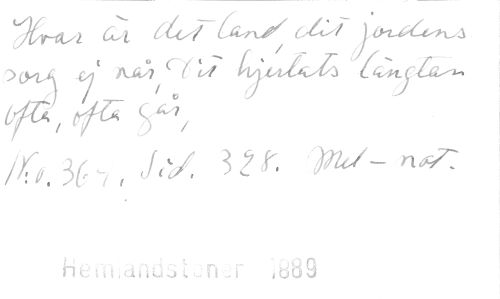 Hvar är det land, dit jordens
sorg ej når, Dit hjertats längtan
ofta, ofta går,
No. 367, Sid. 328. Mel-not.
Hemlandstoner 1889